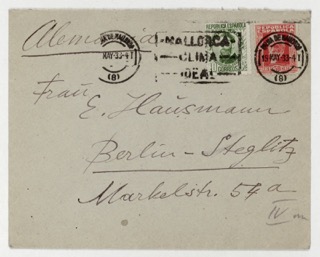 Alemania
MAY-33-41
MALLORCA
CLIMA
IDEAL
(8)
REPUBLICA ESPAÑOLA
MAY-33-41
(8)
Frau
E. Hausmann
Berlin-Steglitz
Markelstr. 54a
IV